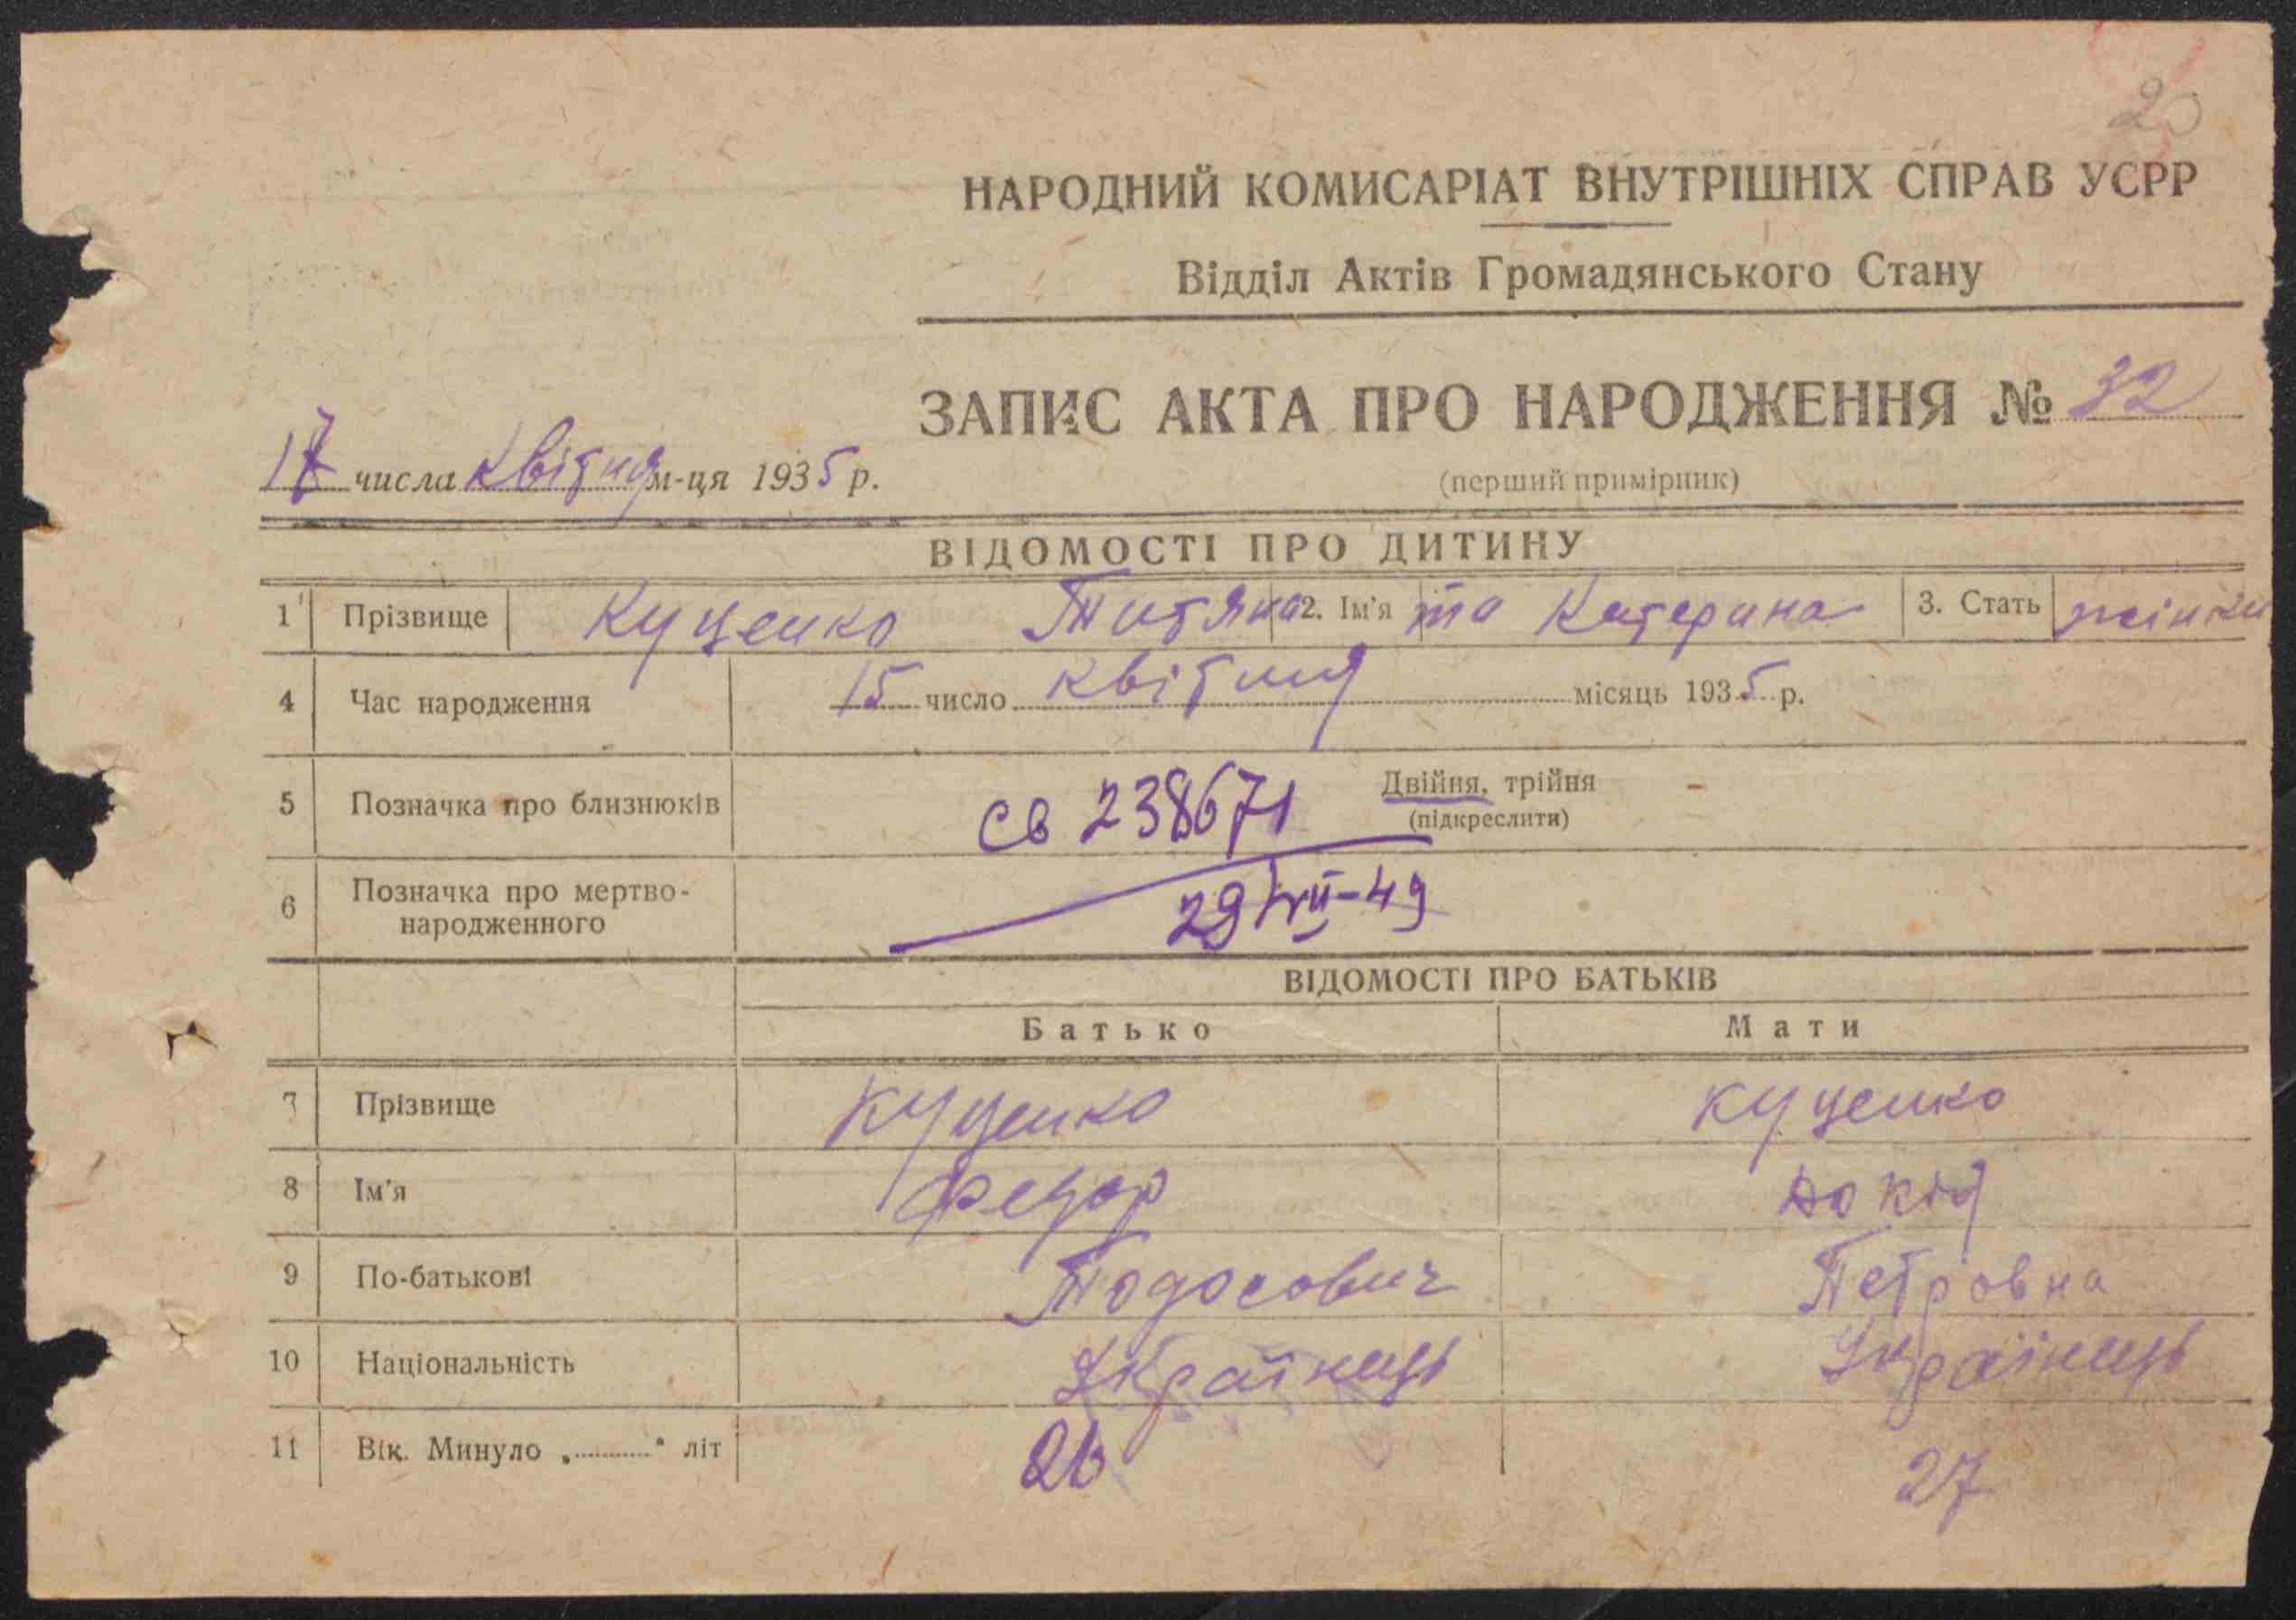 20
НАРОДНИЙ КОМИСАРІАТ ВНУТРІШНІХ СПРАВ УСРР
Відділ Актів Громадянського Стану
ЗАПИС АКТА ПРО НАРОДЖЕННЯ № 32
17 числа квітня м-ця 1935 р.
(перший примірник)
ВІДОМОСТІ ПРО ДИТИНУ
1 Прізвище Куценко Титяна 2. Ім'я та Катерина 3. Стать жінки
4 Час народження 15 число квітня місяць 1935 р.
5 Позначка про близнюків св 238671 Двійня, трійня
(підкреслити)
6 Позначка про мертво-
народженного 29/VII-49
ВІДОМОСТІ ПРО БАТЬКІВ
Батько Мати
7 Прізвище Куценко Куценко
8 Ім'я Федор Докія
9 По-батькові Тодосович Петровна
10 Національність Українець Українець
11 Вік. Минуло „............" літ 26 27